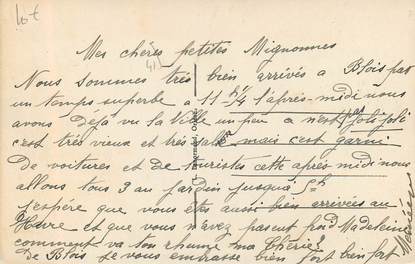 Mes chères petites Mignonnes
Nous sommes très bien arrivés a Blois par
un temps superbe a 11 h 1/4 l'après-midi nous
avons Déjà vu la ville un peu a n'est pas joli joli
c'est très vieux et très sale mais c'est garni
De voitures et de touristes cette après midi nous
allons tous 3 au jardin jusqu'à 5 h
j'espère que vous êtes aussi bien arrivées au
Havre et que vous n'avez pas eut froid Madeleine
comment va ton rhume ma Chérie?
De Blois je vous embrasse bien fort bien fort